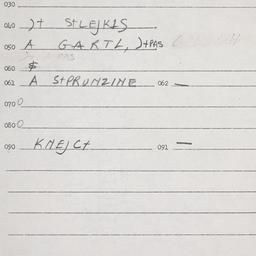 030
040 )+ StLEJKIS
050 A GARTL, )+PAS
060 $
061 A StPRUNZINE 062 —
070 0
080 0
090 KNEJC+ 091 —